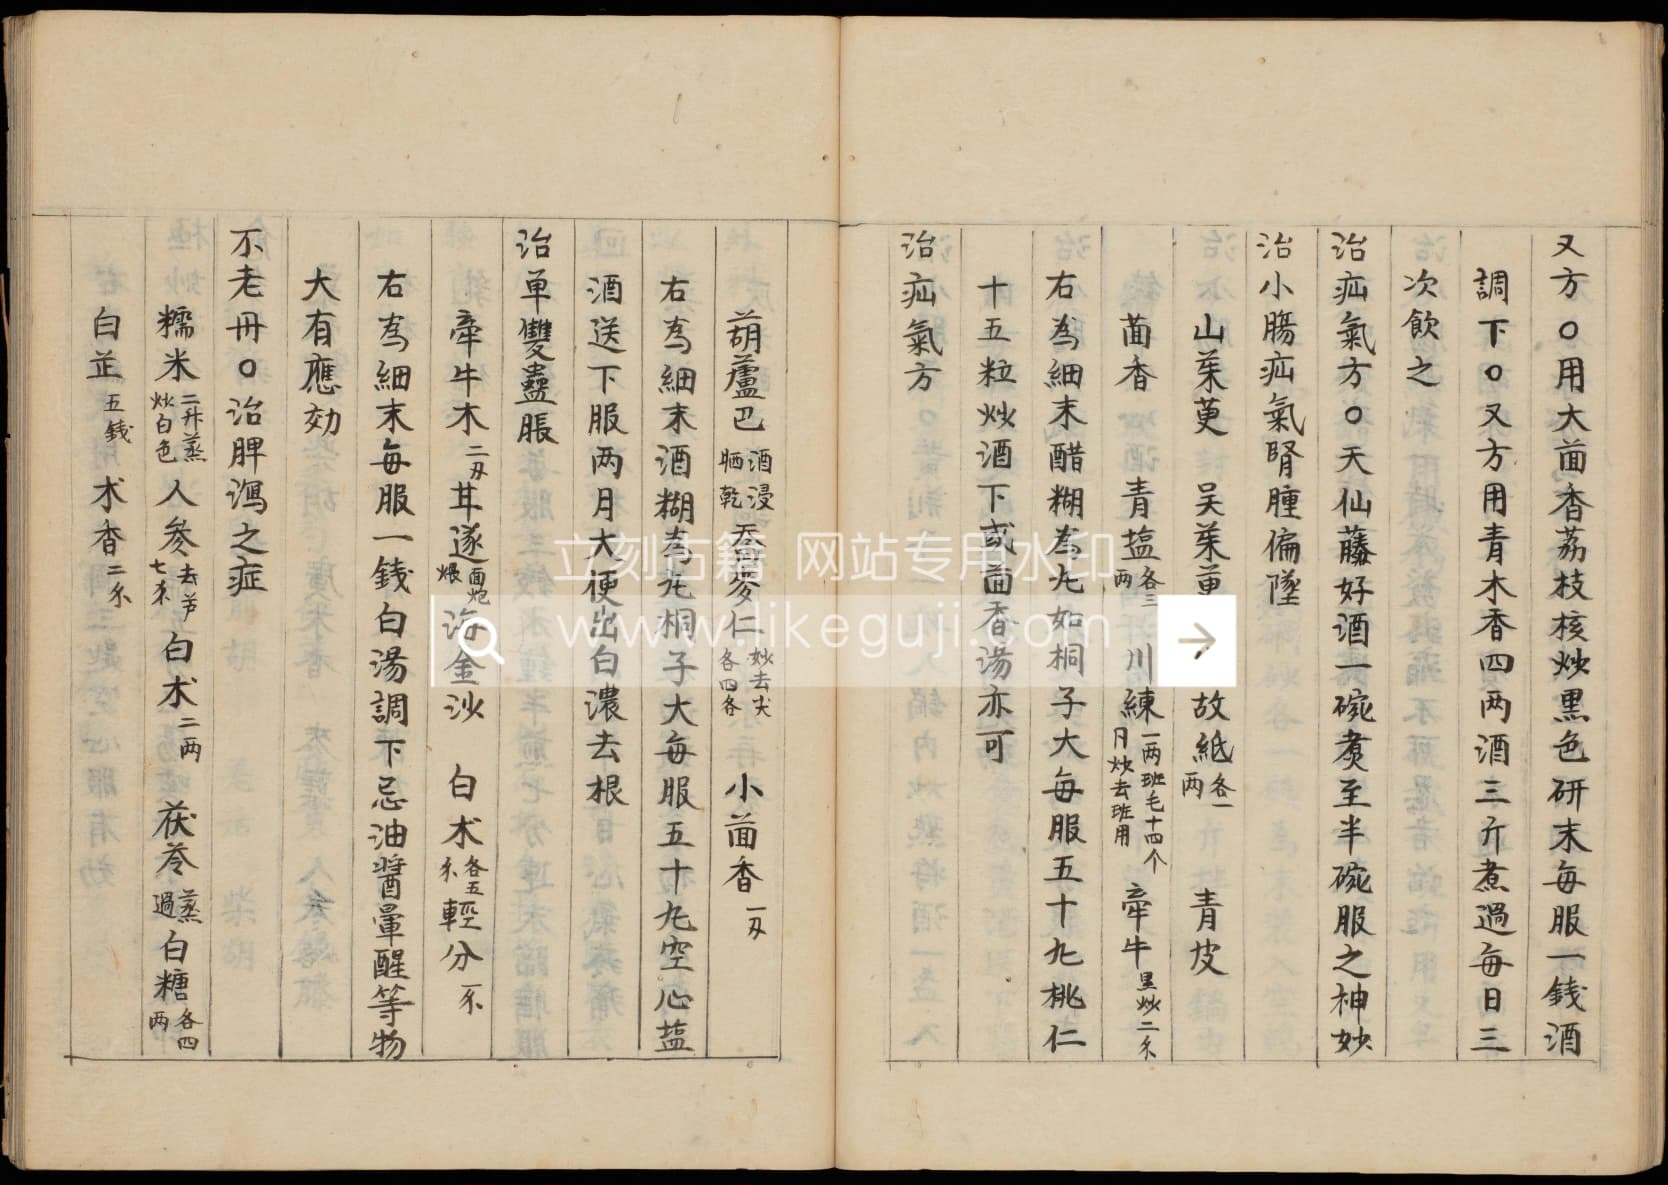 又方○用大茴香荔枝核炒黒色研末每服一錢酒
調下○又方用青木香四两酒三斤煮過每日三
次飲之
治疝氣方○天仙藤好酒一碗煮至半碗服之神妙
治小腸疝氣腎腫偏墜
山茱萸 吴茱萸 故紙各一两 青皮
茴香 青塩各三两 川練一两班毛十四个月炒去班用 牽牛黒炒二不
右為細末醋糊為丸如桐子大每服五十丸桃仁
十五粒炒酒下或茴香湯亦可
治疝氣方
葫蘆巴酒浸晒乾 吞麥仁妙去尖各四各 小茴香一刄
右為細末酒糊為丸桐子大每服五十丸空心塩
酒送下服两月大便出白濃去根
治单雙蠱脹
牽牛木二刄 耳遂面炮煨 海金沙 白术各五不 輕分一不
右為細末每服一錢白湯調下忌油醬暈醒等物
大有應効
不老冊○治脾瀉之症
糯米二升蒸炒白色 人參去芦七不 白术二两 茯苓蒸過 白糖各四两
白芷五錢 木香二不
立刻古籍 网站专用水印
www.likeguji.com